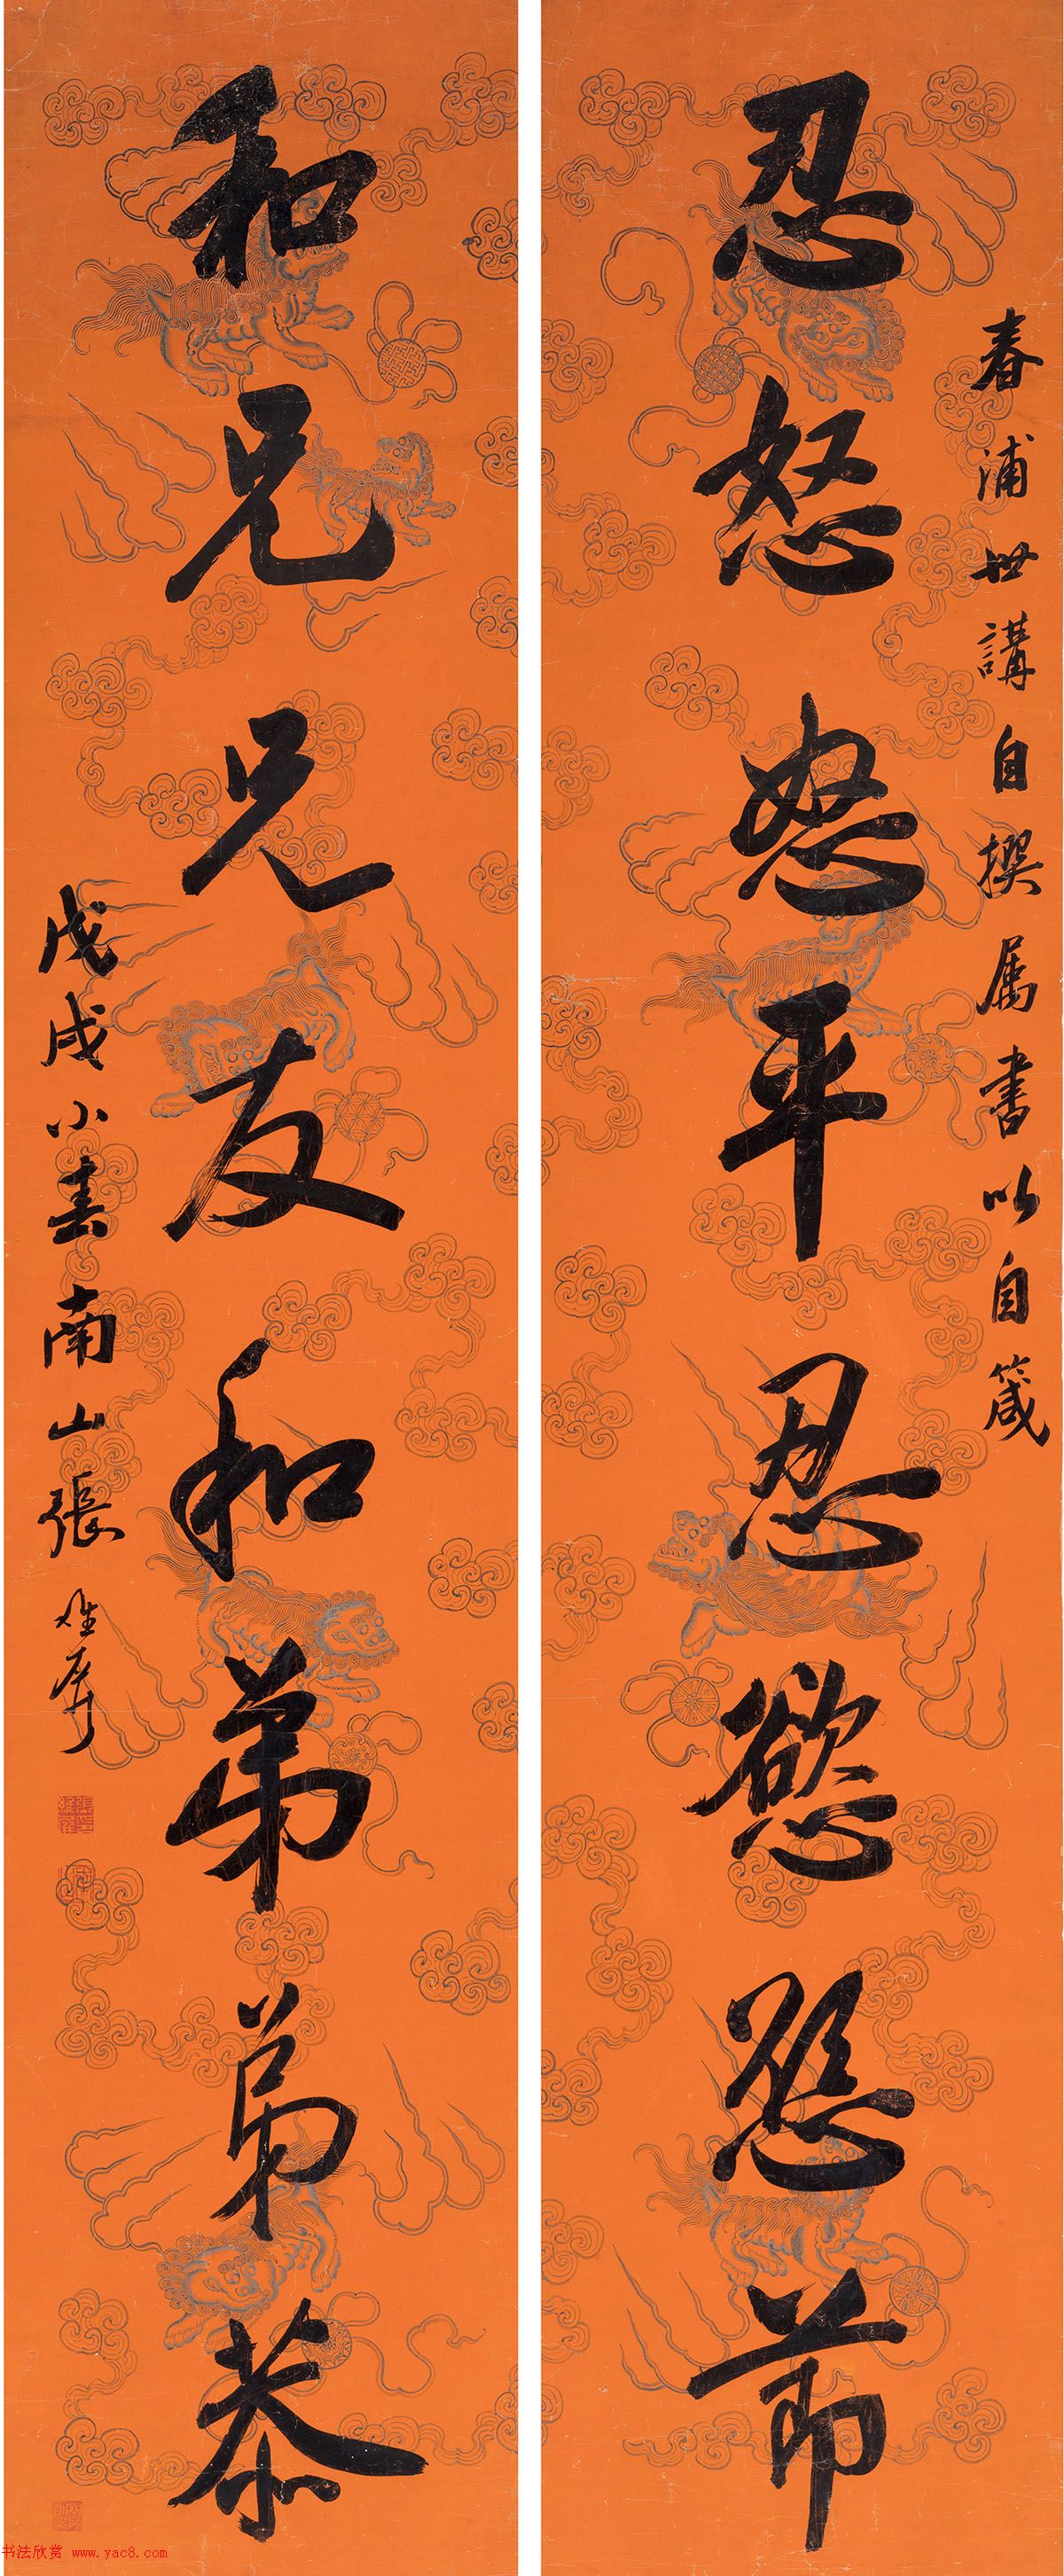 春浦世講自撰属書以自箴
忍怒怒平忍慾慾節
和兄兄友和弟弟恭
戊戌小春南山張維屏
书法欣赏 www.yac8.com